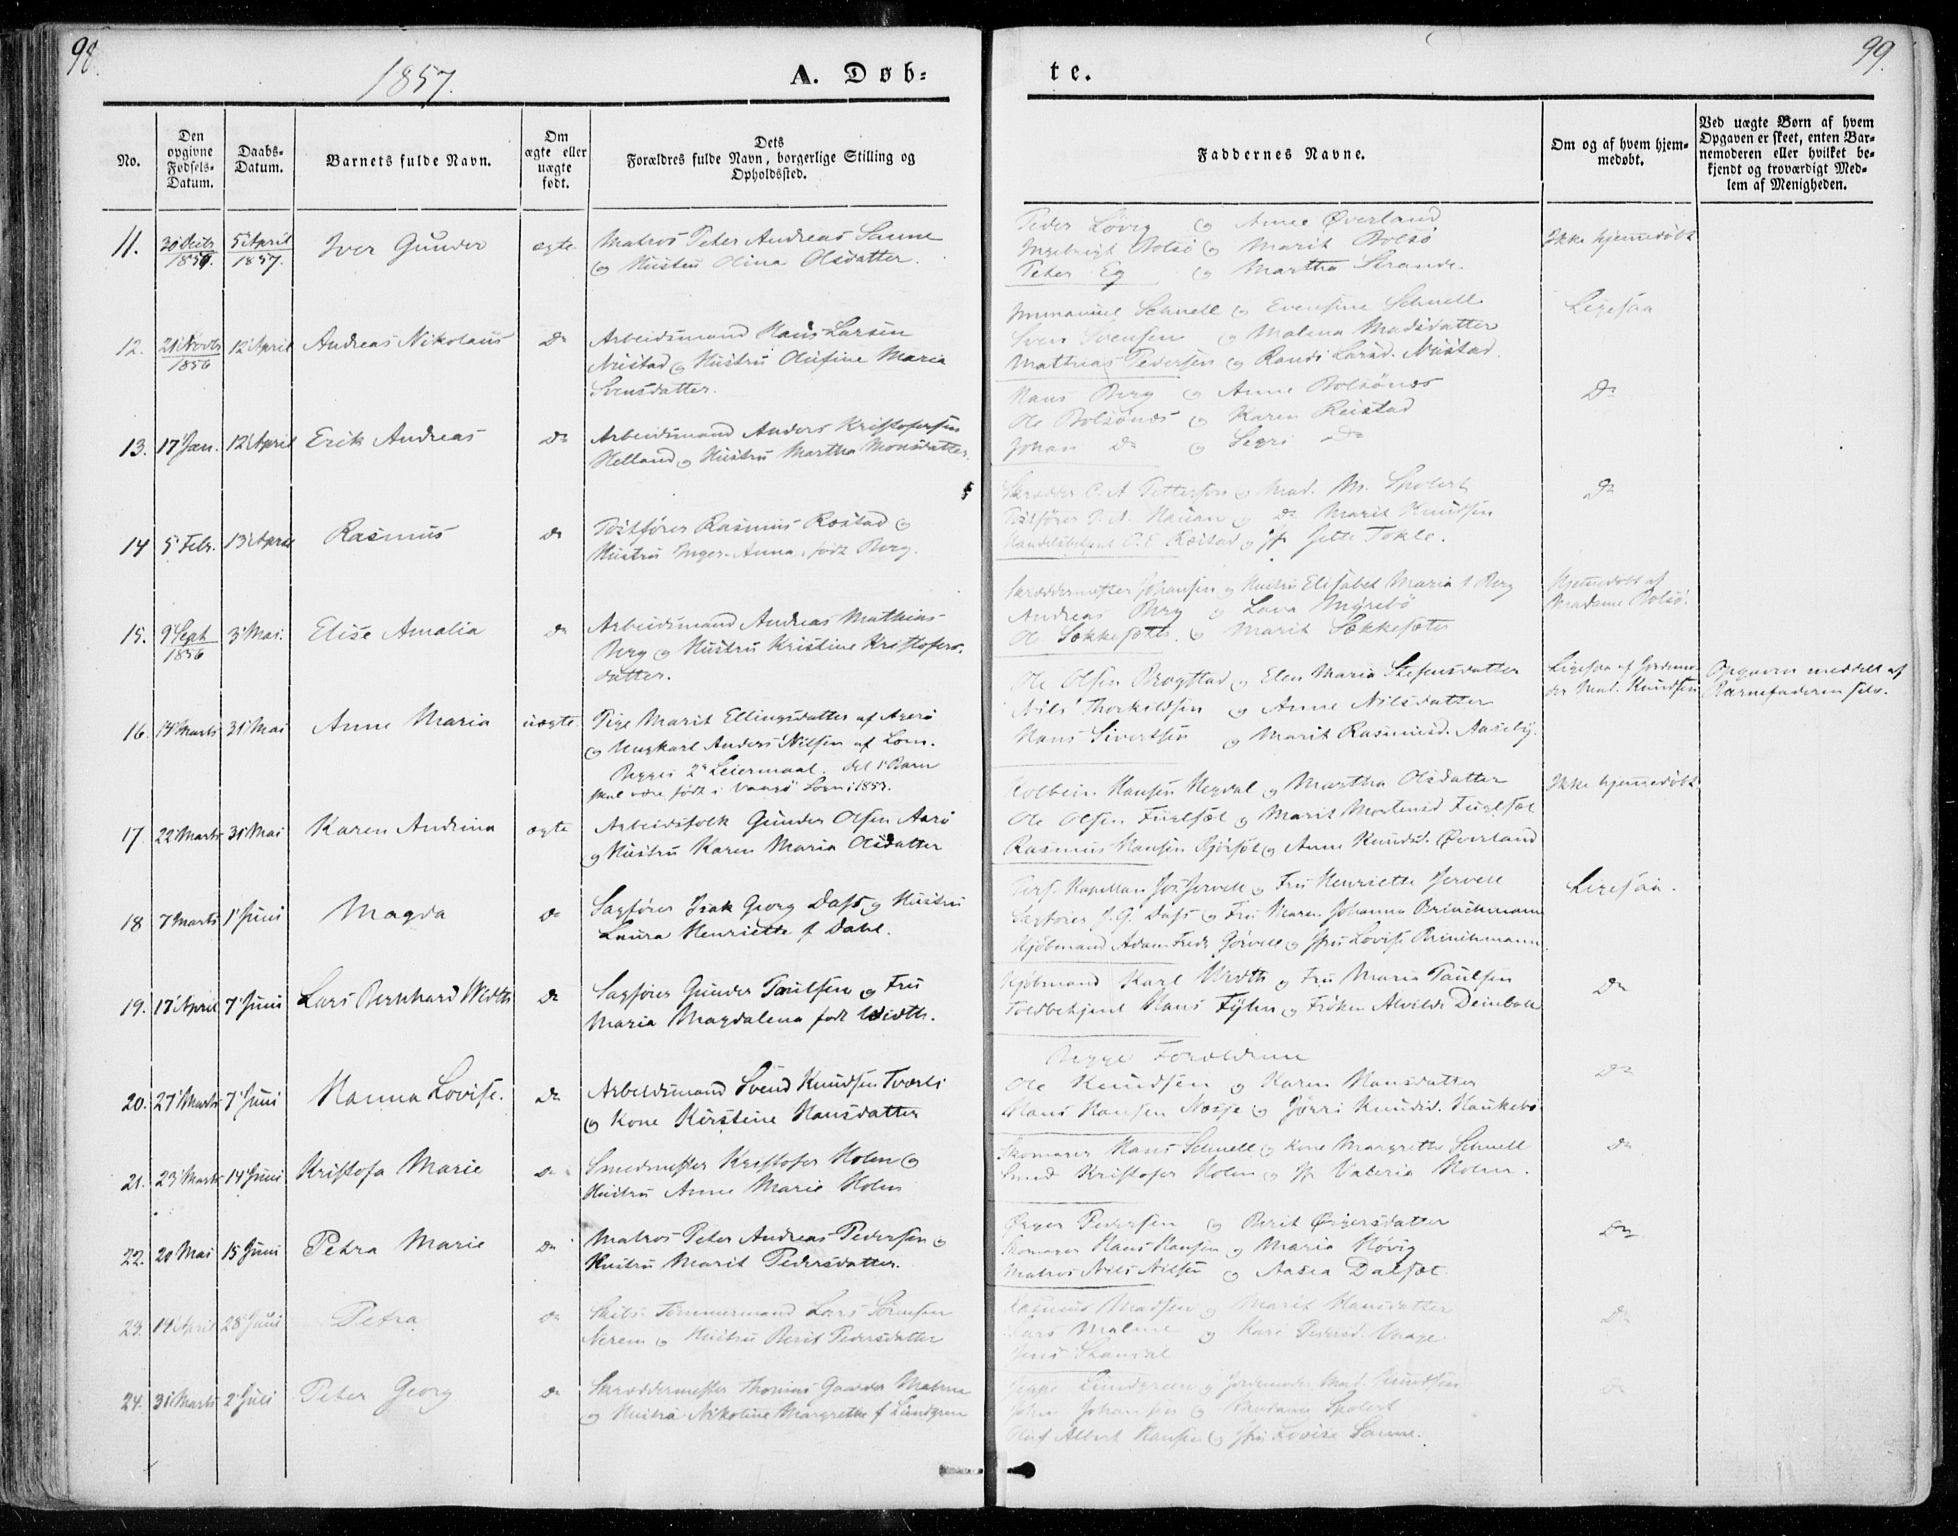 98.
99.
1857.
A. Døb-
te.
No.
Den opgivne Fødsels-Datum.
Daabs-Datum.
Barnets fulde Navn.
Om ægte eller uægte født.
Dets
Forældres fulde Navn, borgerlige Stilling og
Opholdssted.
Faddernes Navne.
Om og af hvem hjem-
medøbt.
Ved uægte Børn af hvem
Opgaven er skeet, enten Bar-
nemoderen eller hvilket be-
kjendt og troværdigt Med-
lem af Menigheden.
11. 30 Decbr 1856. 5 April 1857. Iver Gunder ægte
Matros Peter Andreas Sanne
og Hustru Olina Olsdatter.
Peder Løvig og Anne Øverland
Ingebrigt Bolsø og Marit Bolsø
Peter Eg og Martha Strande.
Ikke hjemmedøbt
12. 21 Novbr 1856 12 April Andreas Nikolaus Do
Arbeidsmand Hans Larsen
Nustad og Hustru Olufine Maria
Svensdatter.
Immanuel Schnell og Evensine Schnell
Sven Svensen og Malena Madsdatter
Mathias Pedersen og Randi Larsd. Nustad.
Ligesaa
13. 17 Jan. 12 April Erik Andreas Do
Arbeidsmand Anders Kristofersen
Helland og Hustru Martha Monsdatter.
Hans Berg og Anne Bolsønes
Ole Bolsønæs og Karen Reistad
Johan Do og Segri Do
Do
14 5 Febr. 13 April Rasmus Do
Postfører Rasmus Røstad og
Hustru Inger Anna, født Berg.
Skrædder C. A. Pettersen og Mad. M. Spolert
Postfører P. A. Hauan og Do Marit Knudsen
Handelsbetjent P. E. Røistad og Jfr Gitte Tokle.
Do
15. 9 Sept 1856 3 Mai. Elise Amalia Do
Arbeidsmand Andreas Mathias
Berg og Hustru Kristine Kristofers-
datter.
Skræddermester Johansen og Hustru Elisabet Maria f. Berg
Andreas Berg og Lava Myrebø
Ole Sekkesæter og Marit Sekkesæter
Hjemmedøbt af
Madame Bolsø.
16. 14 Marts 31 Mai Anne Maria uægte
Pige Marit Ellingsdatter af Agerø
og Ungkarl Anders Nilsen af Lom.
Begges 2det Leiermaal. det 1ste Barn
skal være født i Vaagø Lom i 1853.
Ole Olsen Brogstad og Elen Maria Stefensdatter
Nils Thorkildsen og Anne Nilsdatter
Hans Sivertsen og Marit Rasmusd. Aaseby.
Ligesaa af Jordemo-
der Mad. Knudsen
Opgaven meddelt af
Barnefaderen selv.
17. 22 Marts 31 Mai Karen Andrina ægte
Arbeidsfolk Gunder Olsen Aarø
og Hustru Karen Maria Olsdatter
Kolbein Hansen Hegdal og Martha Olsdatter
Ole Olsen Fuglset og Marit Mortensd Fuglset
Rasmus Hansen Gjørset og Anne Knudsd. Øverland
Ikke hjemmedøbt
18 7 Marts 1 Juni Magda Do
Sagfører Isak Georg Dass og Hustru
Laura Henriette f Dahl.
Pers. Kapellan Jervell og Fru Henriette Jervell
Sagfører I. G. Dass og Fru Maren Johanna Brinchmann
Kjøbmand Adam Fredr Jervell og Fru Lovise Brinchmann.
Ligesaa.
19. 17 April 7 Juni Lars Bernhard Width Do
Sagfører Gunder Paulsen og Fru
Maria Magdalena født Width.
Kjøbmand Karl Width og Fru Maria Paulsen
Toldbetjent Hans Fylin og Frøken Alvilde Deinboll
Do
20. 27 Marts 7 Juni Hanna Lovise. Do
Arbeidsmand Svend Knudsen Tverli
og Kone Kirstine Hansdatter
Begge Forældrene
Ole Knudsen og Karen Hansdatter
Hans Hansen Nesje og Jørri Knudsd. Haukebø
Do
21. 23 Marts 14 Juni Kristofa Marie Do
Smedmester Kristofer Holm og
Hustru Anne Marie Holm
Skomager Hans Schnell og Kone Margrethe Schnell
Smed Kristofer Holm og Jfr Valeria Holm.
Do
22. 20 Mai 15 Juni Petra Marie Do
Matros Peter Andreas Pedersen og
Hustru Marit Pedersdatter.
Ørger Pedersen og Berit Ørgersdatter
Skomager Hans Hansen og Maria Høvig
Matros Nils Nilsen og Aasea Dalset
Do
23. 14 April 28 Juni Petra Do
Skibs-Tømmermand Lars Sørensen
Nerem og Hustru Berit Pedersdatter
Rasmus Madsen og Marit Hansdatter
Lars Malme og Kari Pedersd. Vaage
Jens Skansal
Do
24. 31 Marts 2 Juli Peter Georg Do
Skræddermester Thomas Gaarder Malme
og Hustru Nikoline Margrethe f Lundgren
Jeppe Lundgreen og Jordemoder Mad. Knudsen
John Johansen og Madame Spolert
Oluf Albert Hansen og Jfr Lovise Sanne.
Do